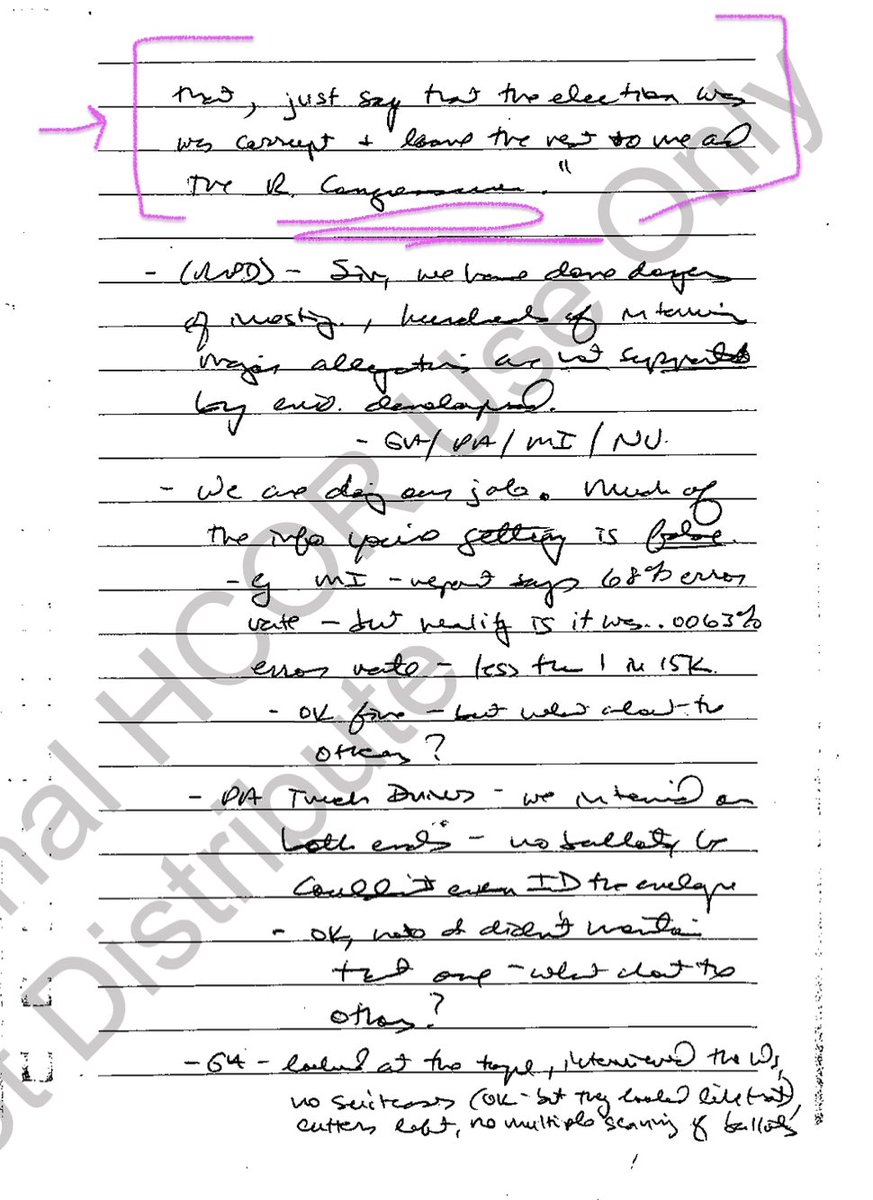 that, just say that the election was
was corrupt + leave the rest to me and
the R. Congressmen."
- (RPD) - Sir, we have done dozens
of investig., hundreds of interviews
major allegations are not supported
by evid. developed.
- GA/PA/MI/NV.
- We are doing our job. Much of
the info you're getting is false.
- eg MI - report says 68% error
rate - but reality is it was .0063%
error rate - less than 1 in 15K.
- OK fine - but what about the
others?
- PA Truck Drivers - we interviewed on
both ends - no ballots
couldn't even ID the envelope
- OK, didn't mention
that one - what about the
others?
- GA - looked at the tape, interviewed the Ws,
no suitcases (OK - but they looked like that),
left, no multiple scanning of ballots
Use Only
HCOR
Distribute